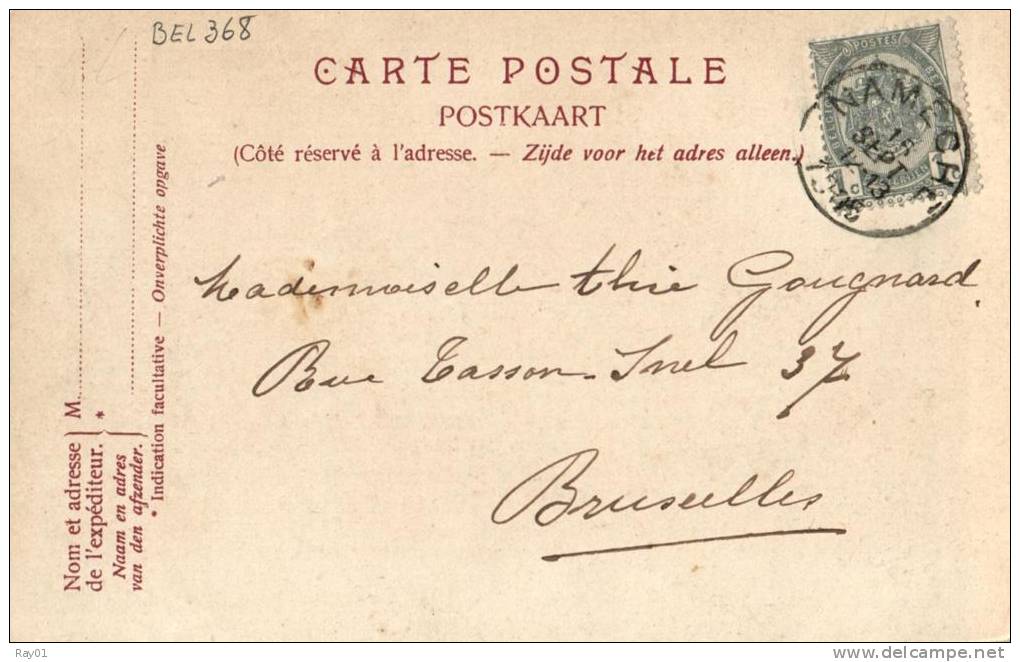 BEL 368
CARTE POSTALE
POSTKAART
(Côté réservé à l'adresse. — Zijde voor het adres alleen.)
POSTES
NAMECHE
15
SEPT
13
Mademoiselle Gougnard
Rue Tasson-Snel 37
Bruxelles
Nom et adresse
de l'expéditeur.
Naam en adres
van den afzender.
M.
*
* Indication facultative — Onverplichte opgave
Ray01
delcampe.net